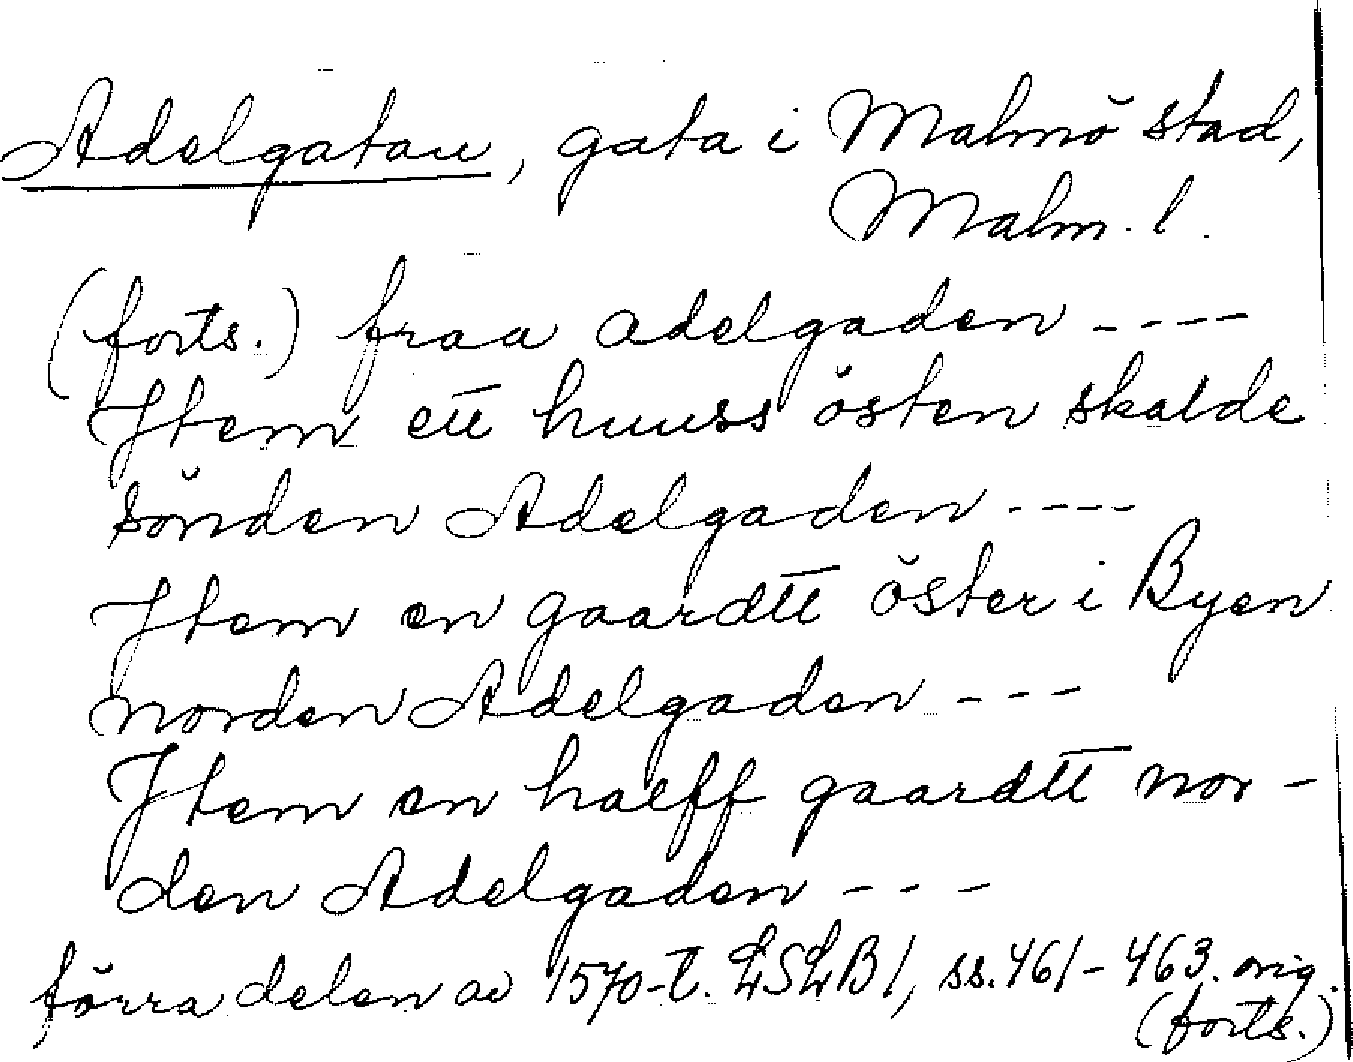 Adelgatan, gata i Malmö stad,
Malm. l.
(forts.) fraa adelgaden ----
Jtem ett huuss östen skalde
sönden Adelgaden ----
Jtem en gaardtt öster i Byen
norden Adelgaden ---
Jtem en halff gaardtt nor-
den Adelgaden ---
förra delen av 1570-t. LSLB1, ss. 461-463. orig.
(forts.)